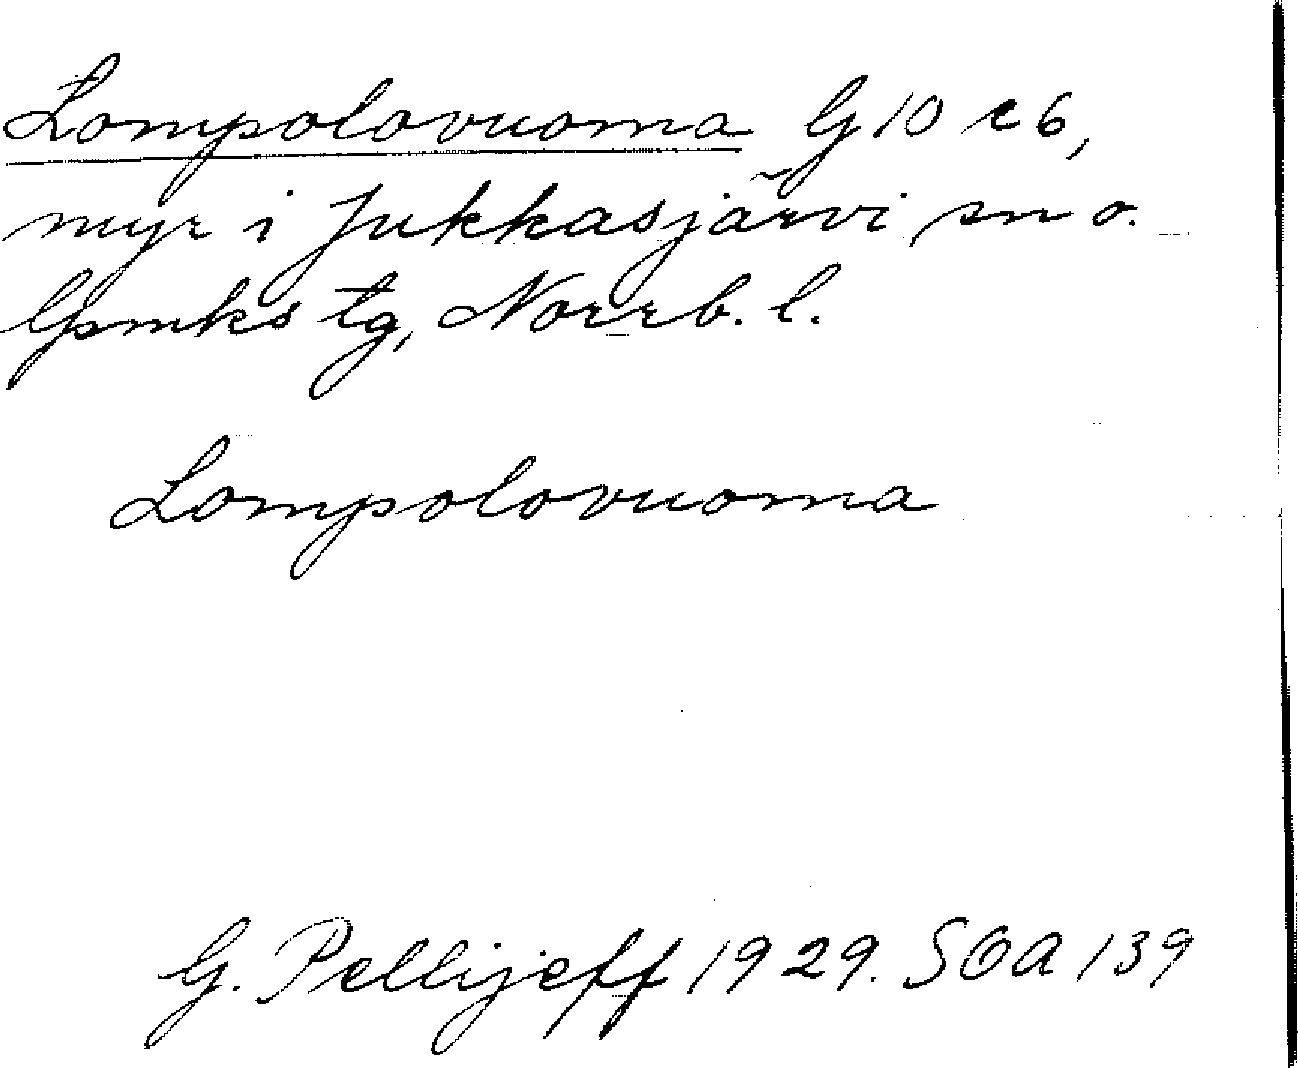 Lompolovuoma G 10 c 6,
myr i Jukkasjärvi sn o.
Gmks tg, Norrb. l.
Lompolovuoma
G. Pellijeff 1929. SOA 139